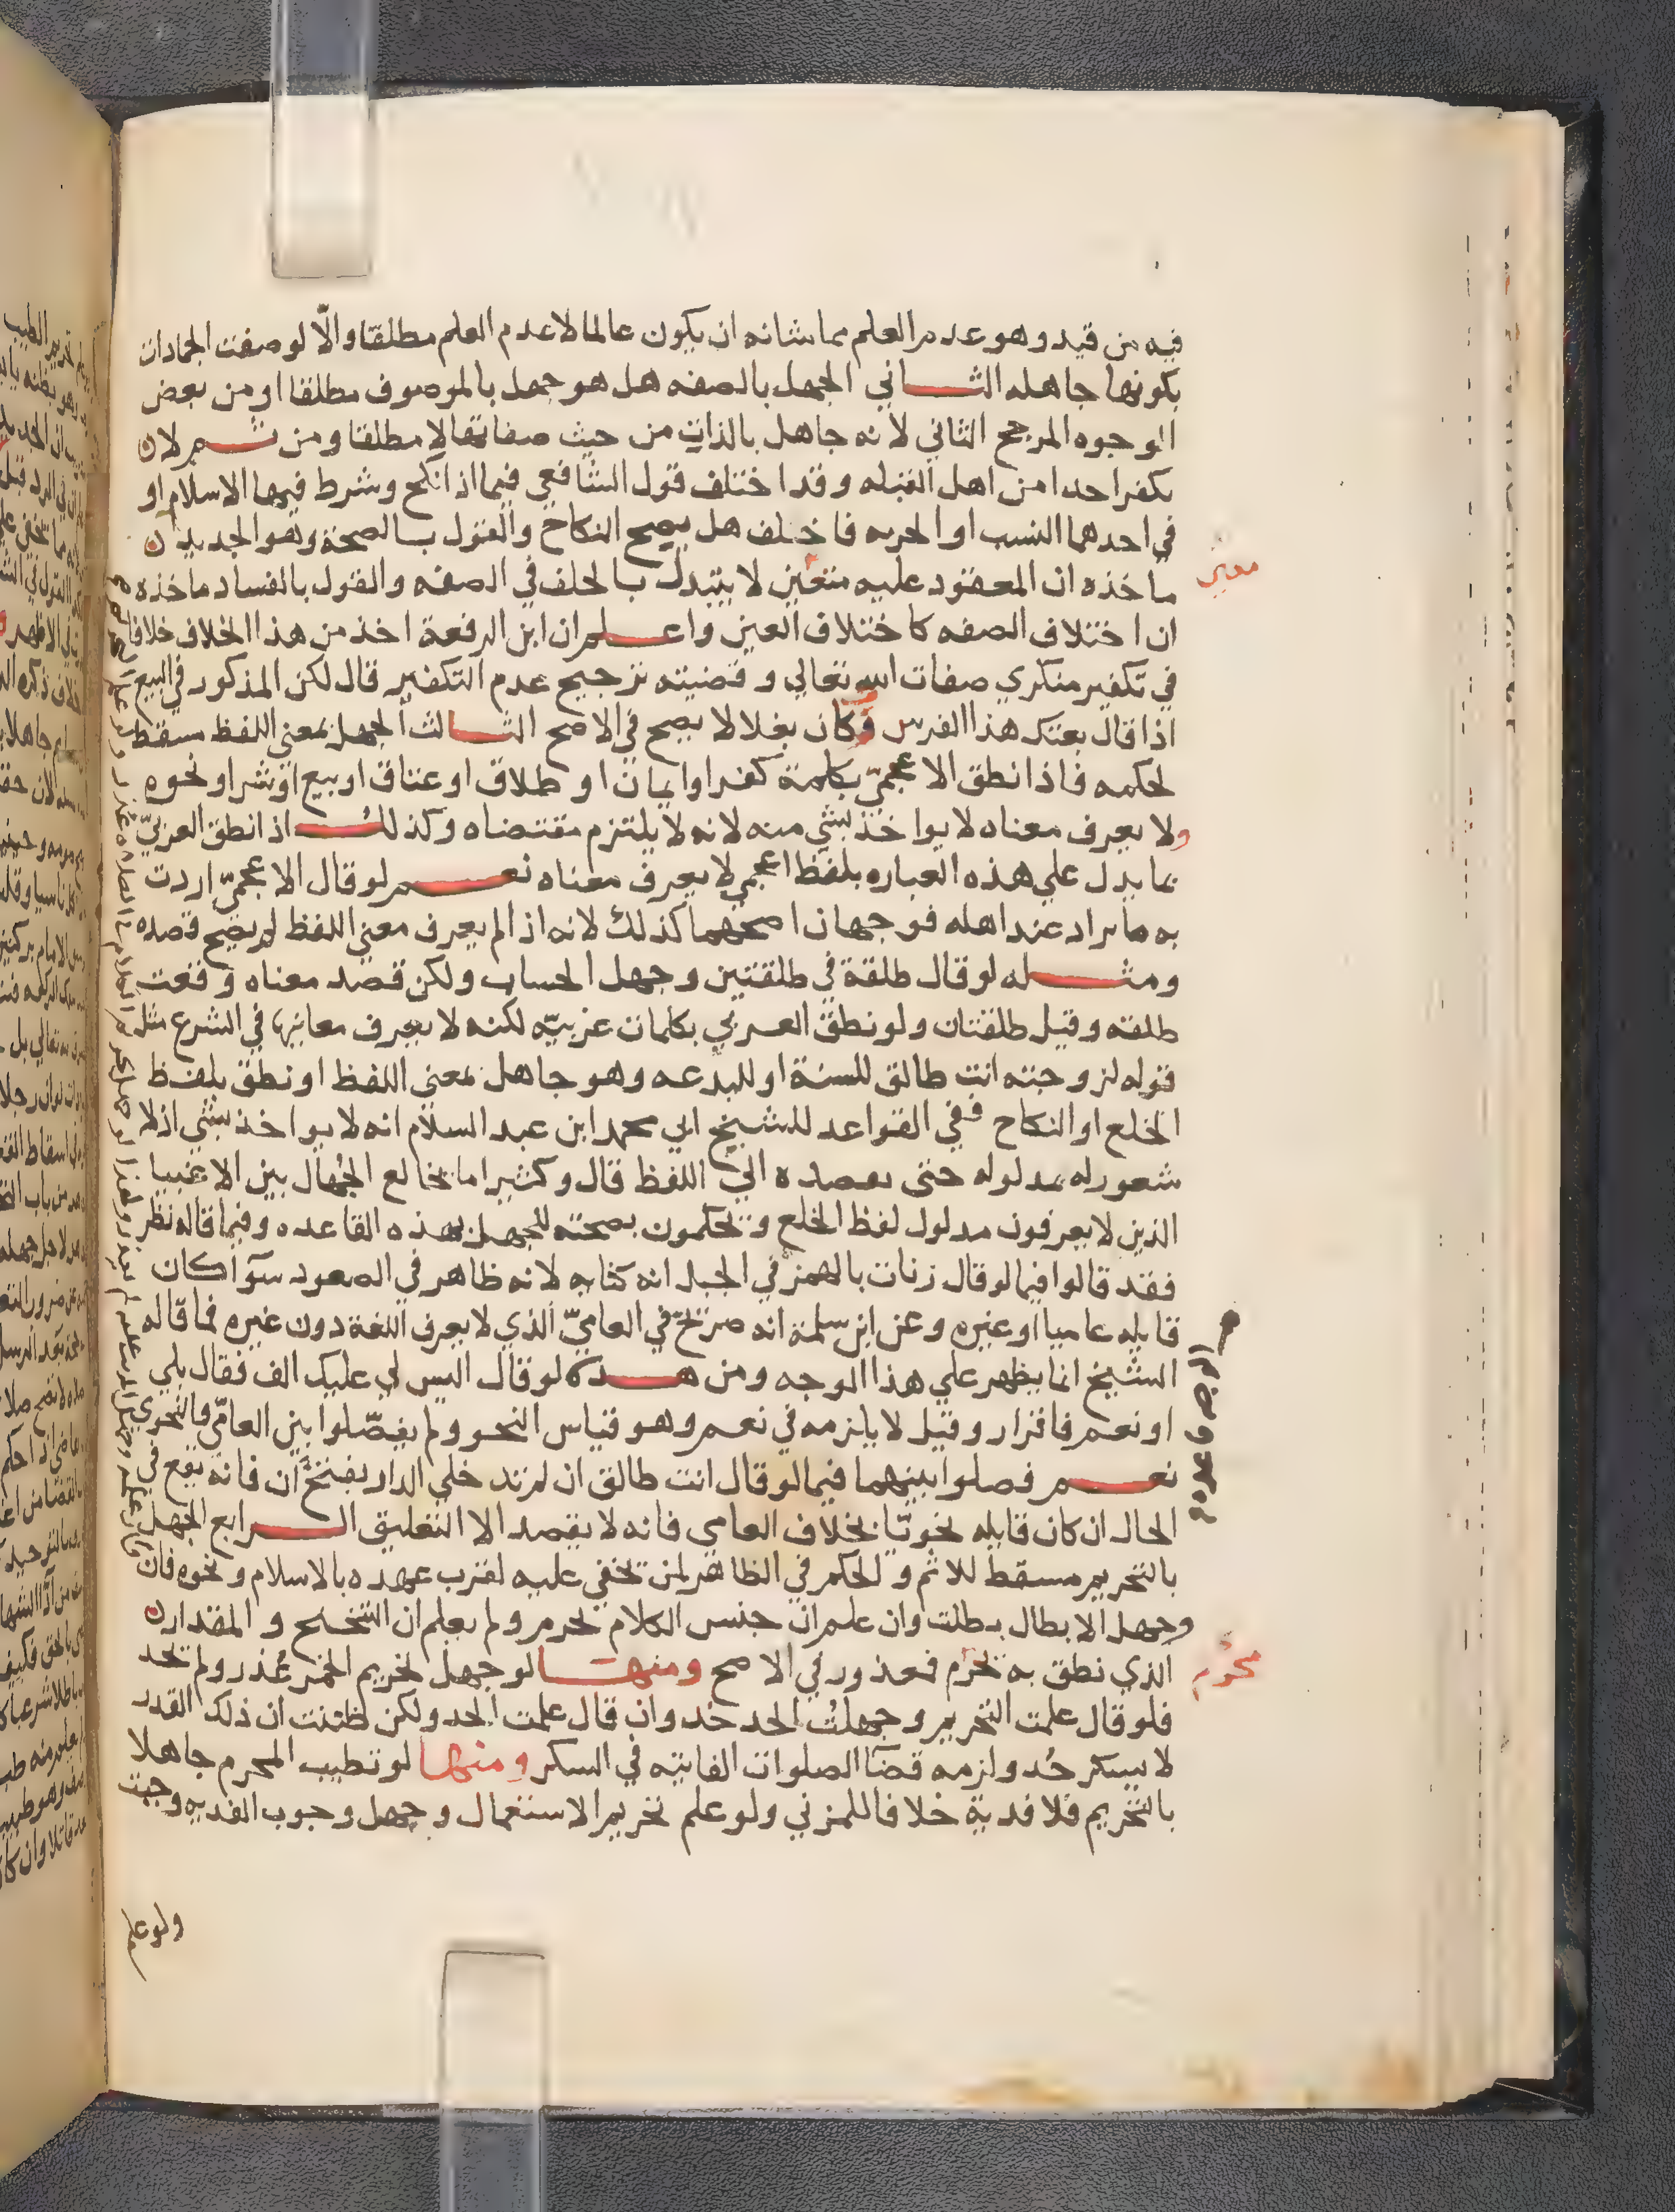 فيه من قيد وهو عدم العلم مما شانه ان يكون عالما لا عدم العلم مطلقا والّا لوصفت الجمادات
بكونها جاهله الثاني الجهل بالصفه هل هو جهل بالموصوف مطلقا او من بعض
الوجوه المرجح الثاني لانه جاهل بالذات من حيث صفاتها لا مطلقا ومن ثم لان
بكفر احدا من اهل القبله وقد اختلف قول الشافعي فيما اذا نكح وشرط فيها الاسلام او
في احدهما النسب او الحريه فاخلف هل يصح النكاح والقول بالصحة وهو الجديد ان
ماخذه ان المعقود عليه متعين لا يتبدل بالخلف في الصفه والقول بالفساد ماخذه
معين
ان اختلاف الصفه كاختلاف العين واعلم ان ابن الرفعة اخذ من هذا الخلاف خلافا
في تكفير منكري صفات الله تعالي وقضيته ترجيح عدم التكفير قال لكن المذكور في البيع
اذا قال بعتك هذا الفرس فكان بغلا لا يصح في الاصح الثالث الجهل بمعني اللفظ مسقط
لحكمه فاذا نطق الاعجميّ بكلمة كفر او ايمان او طلاق او عتاق او بيع او شرا او نحوه
ولا يعرف معناه لا يواخذ بشي منه لانه لا يلتزم مقتضاه وكذلك اذا نطق العربيّ
بما يدل علي هذه العباره بلفظ اعجمي لا يعرف معناه نعم لو قال الاعجميّ اردت
به ما يراد عند اهله فوجهان اصحهما كذلك لانه اذا لم يعرف معني اللفظ لم يصح قصده
ومثله لو قال طلقة في طلقتين وجهل الحساب ولكن قصد معناه وقعت
طلقه وقيل طلقتان ولو نطق العربي بكلمات عربيّه لكنه لا يعرف معانيها في الشرع مثل
قوله لزوجته انت طالق للسنة او للبدعه وهو جاهل بمعني اللفظ او نطق بلفظ
الخلع او النكاح ففي القواعد للشيخ ابي محمد ابن عبد السلام انه لا يواخذ بشي اذ لا
شعور له بمدلوله حتى يقصده الي اللفظ قال وكثيرا ما يخالع الجُهال بين الاغبيا
الذين لا يعرفون مدلول لفظ الخلع ويحكمون بصحته للجهل بهذه القاعده وفيما قاله نظر
فقد قالوا فيما لو قال زنات بالهمز في الجبل انه كنايه لانه ظاهر في الصعود سوآ كان
قايله عاميا او غيره وعن ابن سلمة انه صريح في العاميّ الذي لا يعرف اللغة دون غيره فما قاله
الشيخ انما يظهر علي هذا الوجه ومن هذه لو قال اليس لي عليك الف فقال بلي
او نعم فاقرار وقيل لا يلزمه في نعم وهو قياس النحو ولم يفصّلوا بين العاميّ والنحوي
نعم فصلوا بينهما فيما لو قال انت طالق ان لم تدخلي الدار بفتح ان فانه يقع في
الحال ان كان قايله نحويّا بخلاف العامي فانه لا يقصد الا التعليق الرابع الجهل
بالتحريم مسقط للاثم والحكم في الظاهر لمن يخفي عليه لقرب عهده بالاسلام ونحوه فان
وجهل الابطال بطلت وان علم ان جنس الكلام يحرم ولم يعلم ان التنحنح والمقدار
الذي نطق به يحرم فمعذور في الاصح ومنها لو جهل تحريم الخمر عُذر ولم يحد
محرم
فلو قال علمت التحريم وجهلتُ الحد حُد وان قال علمت الحد ولكن ظننت ان ذلك القدر
لا يسكر حُد ولزمه قضآ الصلوات الفايته في السكر ومنها لو تطيب المحرم جاهلا
بالتحريم فلا فدية خلافا للمزني ولو علم تحريم الاستعمال وجهل وجوب الفديه وجبت
ولو علم